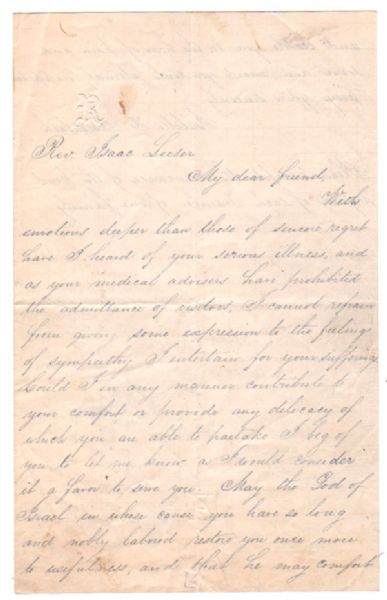 Rev. Isaac Leeser
My dear friend
With
emotions deeper than those of sincere regret
have I heard of your serious illness, and
as your medical advisers have prohibited
the admittance of visitors, I cannot refrain
from giving some expression to the feelings
of sympathy I entertain for your sufferings
Could I in any manner contribute to
your comfort or provide any delicacy of
which you are able to partake I beg of
you to let me know as I would consider
it a favor to serve you. May the God of
Israel in whose cause you have so long
and nobly labored restore you once more
to usefulness, and that he may comfort